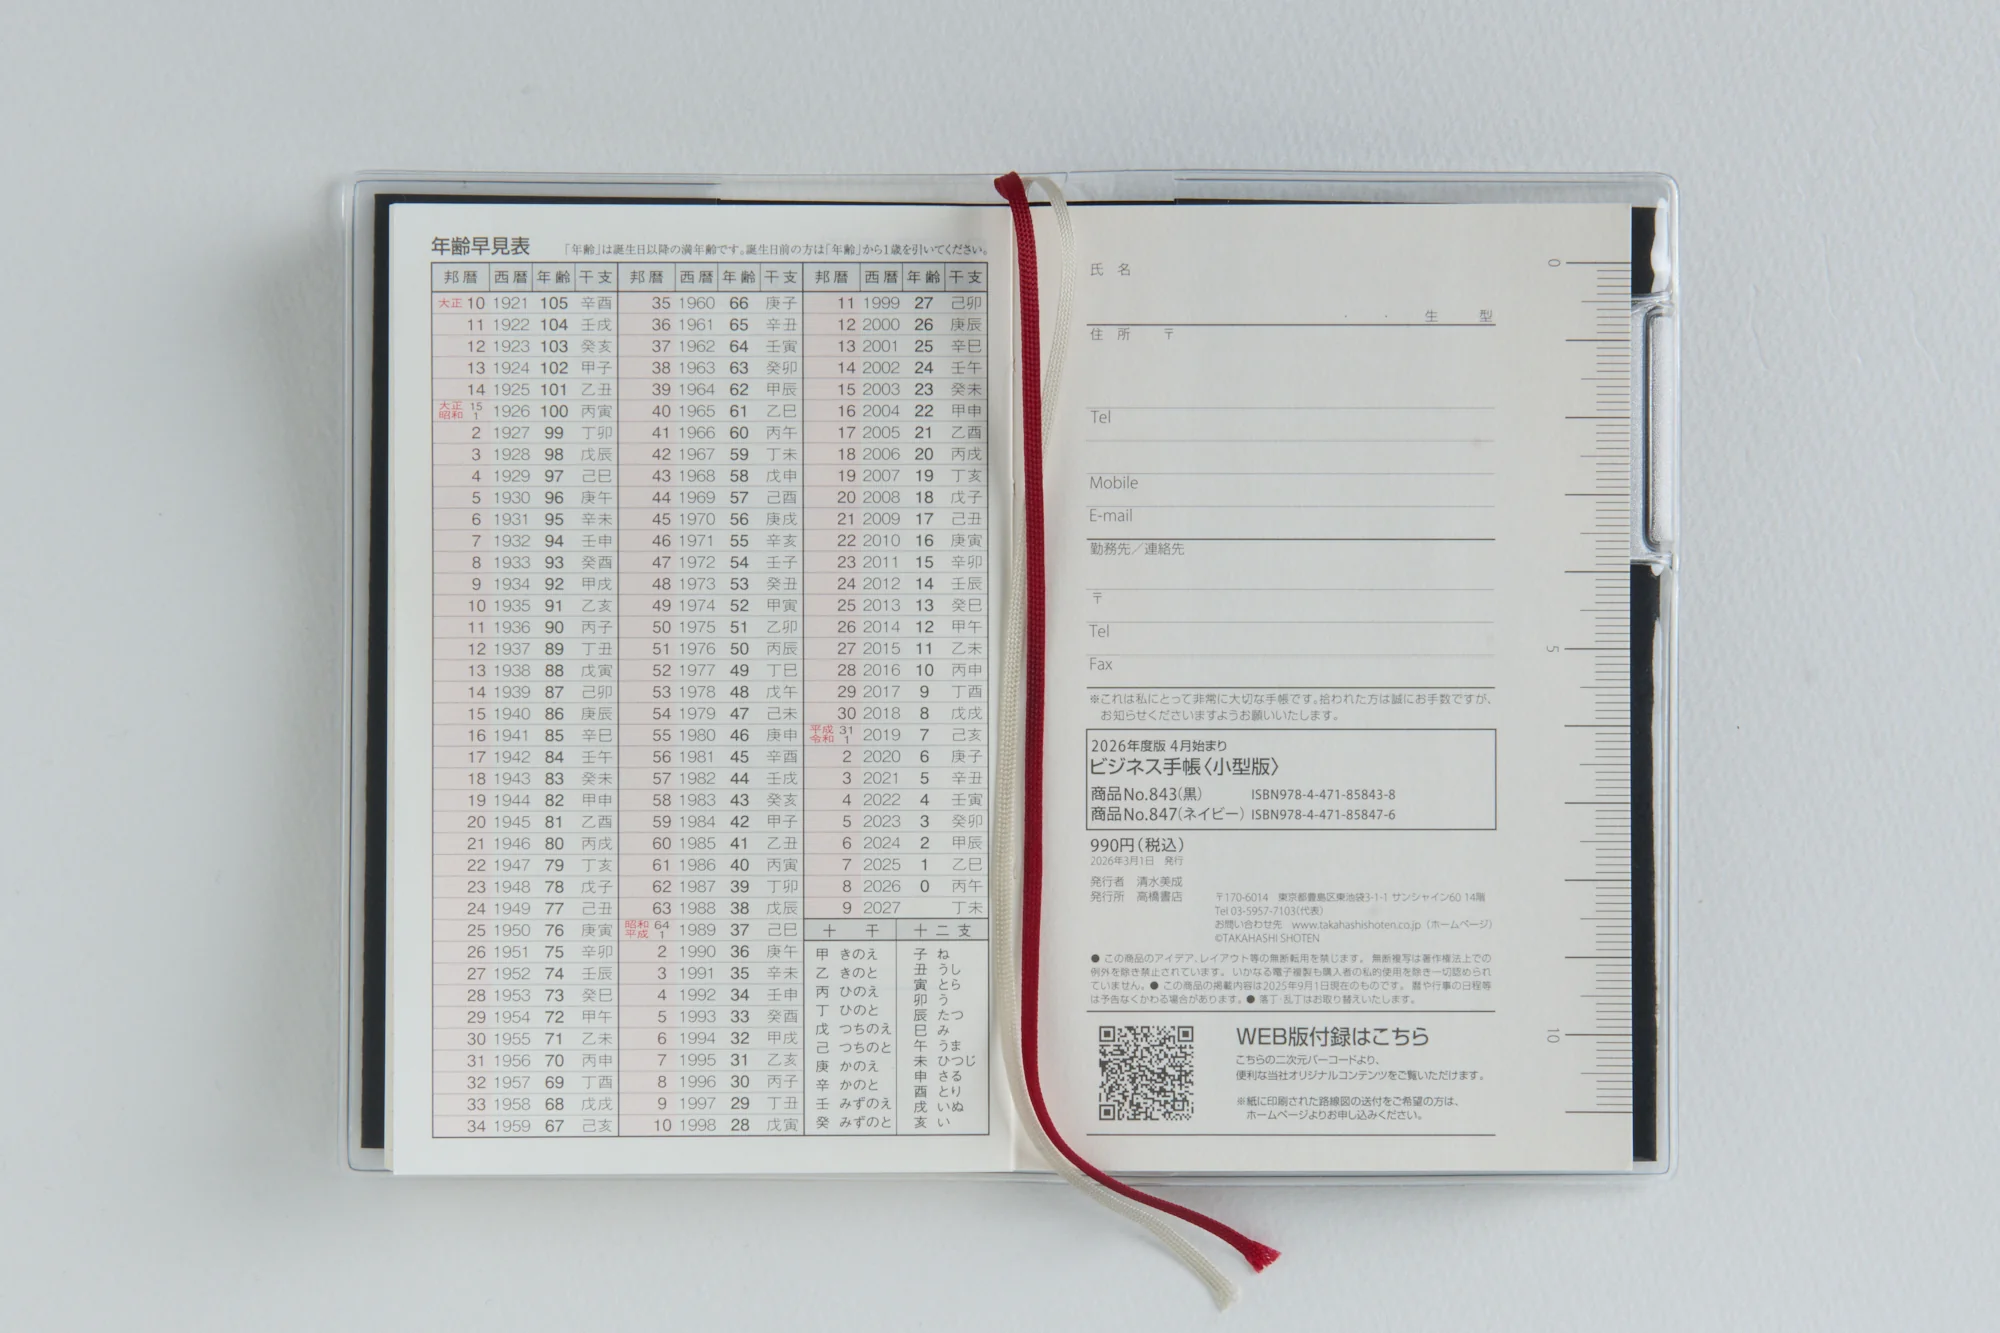 年齢早見表 「年齢」は誕生日以降の満年齢です。誕生日前の方は「年齢」から1歳を引いてください。
邦暦 西暦 年齢 干支 邦暦 西暦 年齢 干支 邦暦 西暦 年齢 干支
大正 10 1921 105 辛酉 35 1960 66 庚子 11 1999 27 己卯
11 1922 104 壬戌 36 1961 65 辛丑 12 2000 26 庚辰
12 1923 103 癸亥 37 1962 64 壬寅 13 2001 25 辛巳
13 1924 102 甲子 38 1963 63 癸卯 14 2002 24 壬午
14 1925 101 乙丑 39 1964 62 甲辰 15 2003 23 癸未
大正 15 昭和 1 1926 100 丙寅 40 1965 61 乙巳 16 2004 22 甲申
2 1927 99 丁卯 41 1966 60 丙午 17 2005 21 乙酉
3 1928 98 戊辰 42 1967 59 丁未 18 2006 20 丙戌
4 1929 97 己巳 43 1968 58 戊申 19 2007 19 丁亥
5 1930 96 庚午 44 1969 57 己酉 20 2008 18 戊子
6 1931 95 辛未 45 1970 56 庚戌 21 2009 17 己丑
7 1932 94 壬申 46 1971 55 辛亥 22 2010 16 庚寅
8 1933 93 癸酉 47 1972 54 壬子 23 2011 15 辛卯
9 1934 92 甲戌 48 1973 53 癸丑 24 2012 14 壬辰
10 1935 91 乙亥 49 1974 52 甲寅 25 2013 13 癸巳
11 1936 90 丙子 50 1975 51 乙卯 26 2014 12 甲午
12 1937 89 丁丑 51 1976 50 丙辰 27 2015 11 乙未
13 1938 88 戊寅 52 1977 49 丁巳 28 2016 10 丙申
14 1939 87 己卯 53 1978 48 戊午 29 2017 9 丁酉
15 1940 86 庚辰 54 1979 47 己未 30 2018 8 戊戌
16 1941 85 辛巳 55 1980 46 庚申 平成 31 令和 1 2019 7 己亥
17 1942 84 壬午 56 1981 45 辛酉 2 2020 6 庚子
18 1943 83 癸未 57 1982 44 壬戌 3 2021 5 辛丑
19 1944 82 甲申 58 1983 43 癸亥 4 2022 4 壬寅
20 1945 81 乙酉 59 1984 42 甲子 5 2023 3 癸卯
21 1946 80 丙戌 60 1985 41 乙丑 6 2024 2 甲辰
22 1947 79 丁亥 61 1986 40 丙寅 7 2025 1 乙巳
23 1948 78 戊子 62 1987 39 丁卯 8 2026 0 丙午
24 1949 77 己丑 63 1988 38 戊辰 9 2027 丁未
25 1950 76 庚寅 昭和 64 平成 1 1989 37 己巳
26 1951 75 辛卯 2 1990 36 庚午
27 1952 74 壬辰 3 1991 35 辛未
28 1953 73 癸巳 4 1992 34 壬申
29 1954 72 甲午 5 1993 33 癸酉
30 1955 71 乙未 6 1994 32 甲戌
31 1956 70 丙申 7 1995 31 乙亥
32 1957 69 丁酉 8 1996 30 丙子
33 1958 68 戊戌 9 1997 29 丁丑
34 1959 67 己亥 10 1998 28 戊寅
十干 十二支
甲 きのえ
乙 きのと
丙 ひのえ
丁 ひのと
戊 つちのえ
己 つちのと
庚 かのえ
辛 かのと
壬 みずのえ
癸 みずのと
子 ね
丑 うし
寅 とら
卯 う
辰 たつ
巳 み
午 うま
未 ひつじ
申 さる
酉 とり
戌 いぬ
亥 い
氏名
・ ・ 生 型
住所 〒
Tel
Mobile
E-mail
勤務先／連絡先
〒
Tel
Fax
※これは私にとって非常に大切な手帳です。拾われた方は誠にお手数ですが、
お知らせくださいますようお願いいたします。
2026年度版 4月始まり
ビジネス手帳〈小型版〉
商品No.843(黒) ISBN978-4-471-85843-8
商品No.847(ネイビー) ISBN978-4-471-85847-6
990円(税込)
2026年3月1日 発行
発行者 清水美成
発行所 高橋書店 〒170-6014 東京都豊島区東池袋3-1-1 サンシャイン60 14階
Tel 03-5957-7103(代表)
お問い合わせ先 www.takahashishoten.co.jp（ホームページ）
©TAKAHASHI SHOTEN
● この商品のアイデア、レイアウト等の無断転用を禁じます。 無断複写は著作権法上での
例外を除き禁止されています。 いかなる電子複製も購入者の私的使用を除き一切認められ
ていません。● この商品の掲載内容は2025年9月1日現在のものです。 暦や行事の日程等
は予告なくかわる場合があります。● 落丁・乱丁はお取り替えいたします。
WEB版付録はこちら
こちらの二次元バーコードより、
便利な当社オリジナルコンテンツをご覧いただけます。
※紙に印刷された路線図の送付をご希望の方は、
ホームページよりお申し込みください。
0
5
10